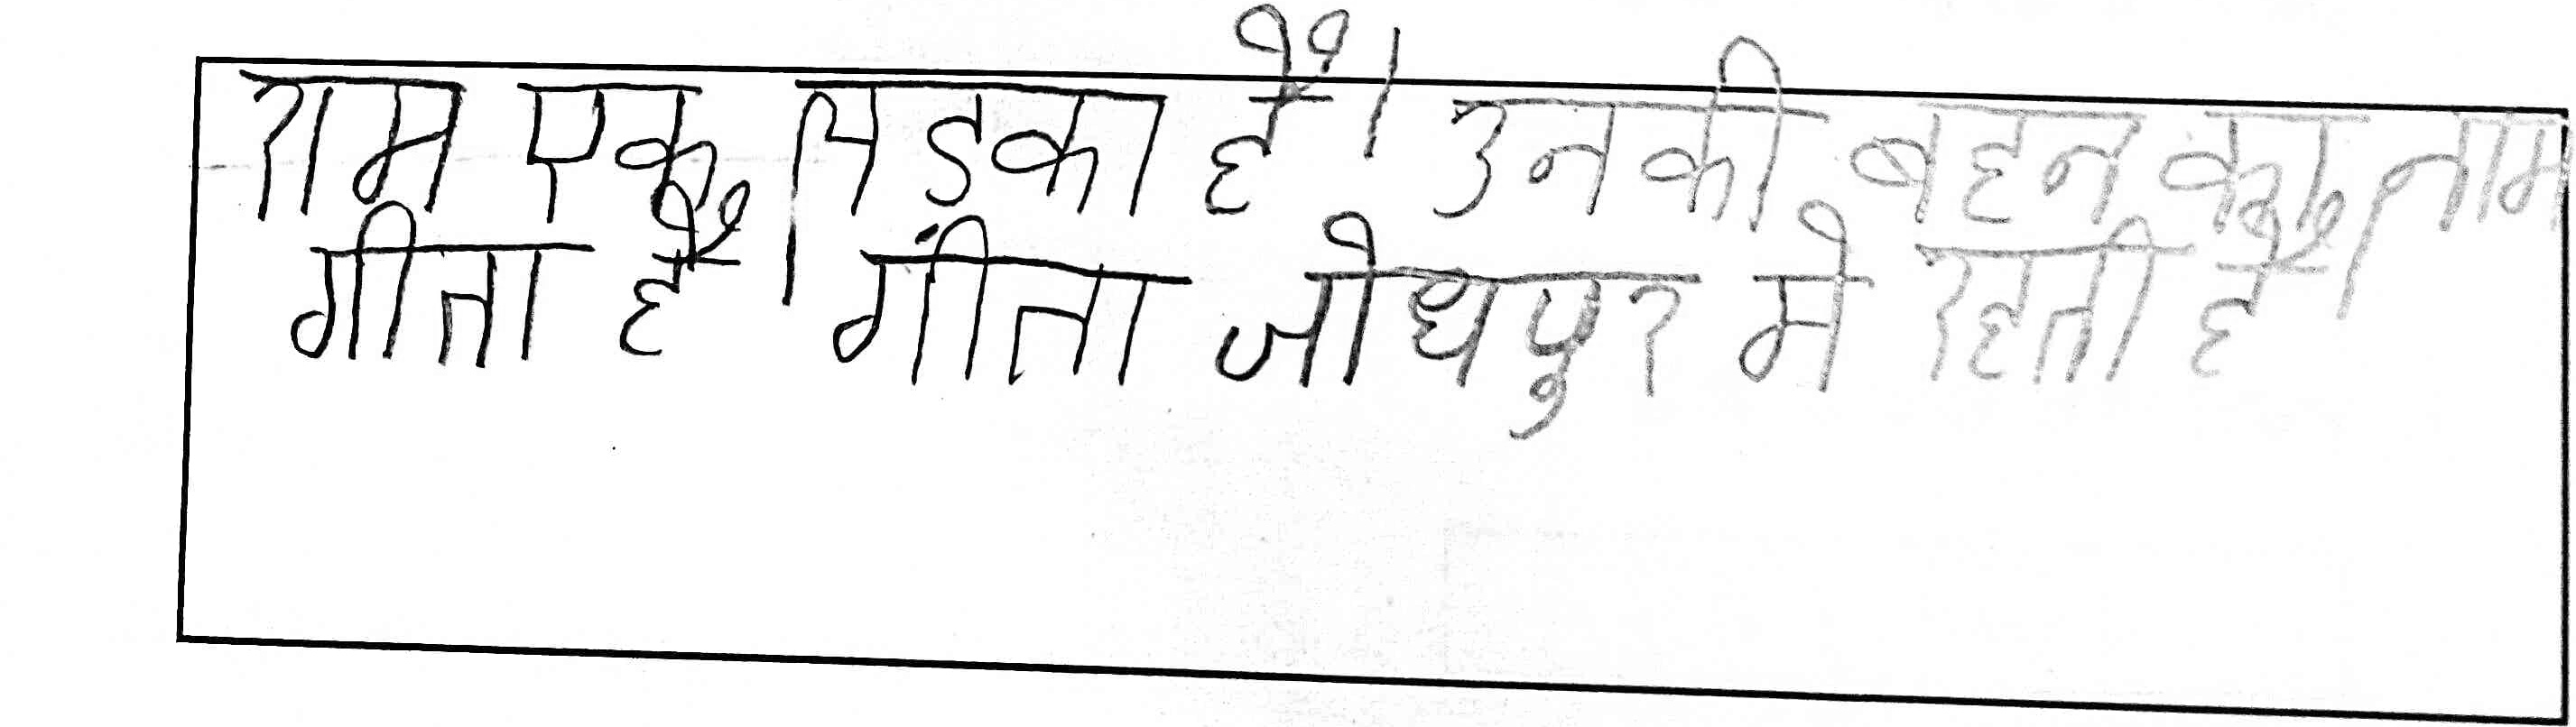 राम एक लडका है। उनकी बहन का नाम
गीता है। गीता जोधपुर मे रहती है।